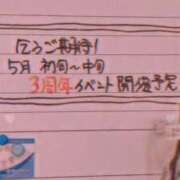 乞うご期待!
5月 初旬~中旬
3周年イベント開催予定